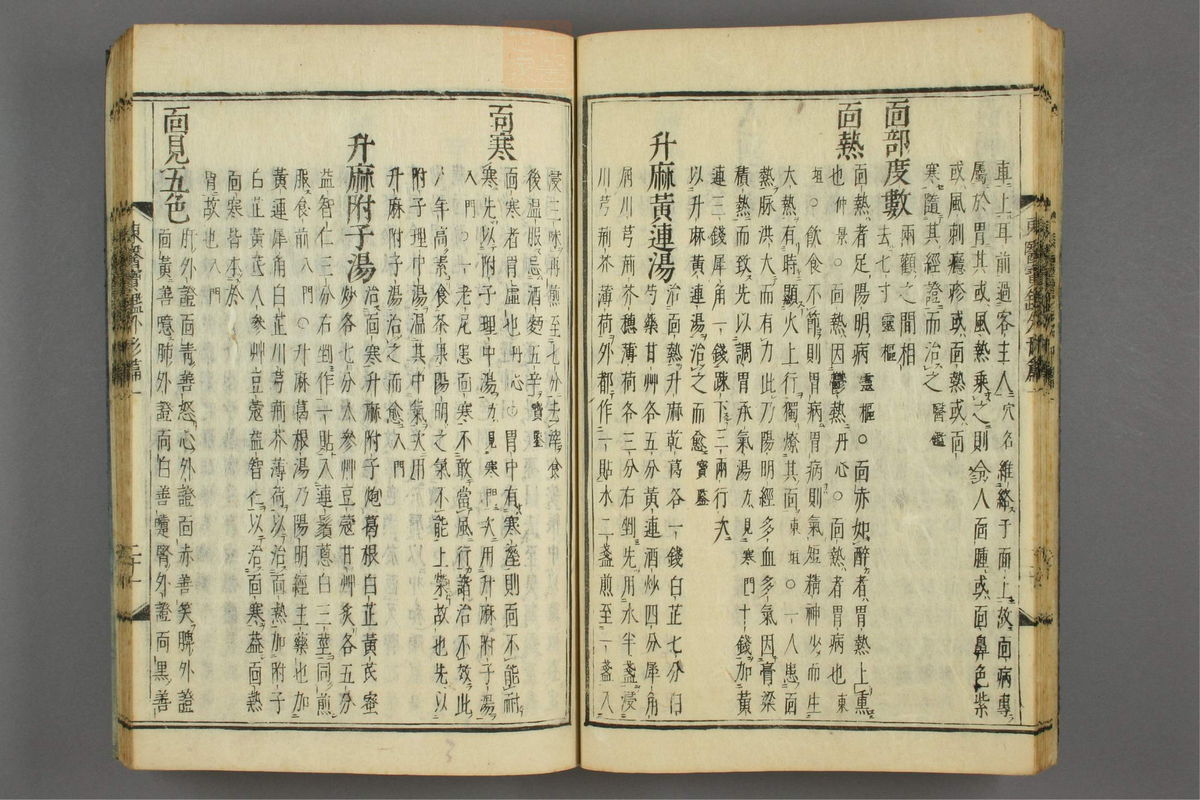 車上耳前過客主人穴名維絡于面上故面病專
屬於胃其或風熱乘之則令人面腫或面鼻色紫
或風刺癮疹或面熱或面
寒隨其經證而治之醫鑑
面部度數兩顴之間相
去七寸靈樞
面熱面熱者足陽明病靈樞○面赤如醉者胃熱上熏
仲景○面熱因鬱熱丹心○面熱者胃病也東
垣○飲食不節則胃病胃病則氣短精神少而生
大熱有時顯火上行獨燎其面東垣○一人患面
熱脉洪大而有力此乃陽明經多血多氣因膏粱
積熱而致先以調胃承氣湯方見寒門七錢加黃
連三錢犀角一錢踈下三兩行次
以升麻黃連湯治之而愈寶鑒
升麻黃連湯治面熱升麻乾葛各一錢白芷七分白
芍藥甘艸各五分黃連酒炒四分犀角
屑川芎荊芥穗薄荷各三分右剉先用水半盞浸
川芎荊芥薄荷外都作一貼水二盞煎至一盞入
浸三味再煎至七分去滓食
後温服忌酒麵五辛寶鑒
面寒面寒者胃虛也丹心○胃中有寒濕則面不能耐
寒先以附子理中湯方見寒門次用升麻附子湯
入門○一老尼患面寒不敢當風行諸治不效此
人年高素食茶果陽明之氣不能上榮故也先以
附子理中湯温其中氣次用
升麻附子湯治之而愈入門
升麻附子湯治面寒升麻附子炮葛根白芷黃芪蜜
炒各七分人參艸豆蔻甘艸炙各五分
益智仁三分右剉作一貼入連鬚葱白三莖同煎
服食前入門○升麻葛根湯乃陽明經主藥也加
黃連犀角白芷川芎荊芥薄荷以治面熱加附子
白芷黃芪人參艸豆蔻益智仁以治面寒盖面熱
面寒皆本於
胃故也入門
面見五色肝外證面青善怒心外證面赤善笑脾外證
面黃善噫肺外證面白善嚏腎外證面黑善
東醫寶鑑外形篇一
二十一
東醫寶鑑外形篇